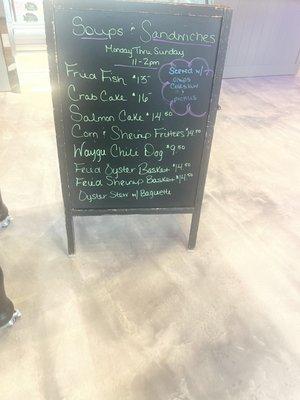 Soups & Sandwiches
Monday Thru Sunday
11-2pm
Fried Fish $13-
Crab Cake $16-
Salmon Cake $14.50
Corn & Shrimp Fritters $14.50
Waygu Chili Dog $9.50
Fried Oyster Basket $14.50
Fried Shrimp Basket $14.50
Oyster Stew w/ Baguette
Served w/
chips
Coleslaw
&
pickles